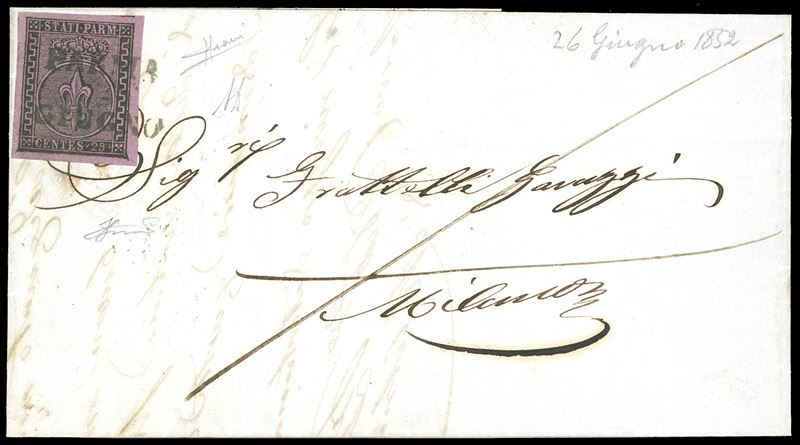 STATI PARM
CENTES. 25
GIUGNO
26 Giugno 1852
Sig ri Fratelli Gavazzi
Milano